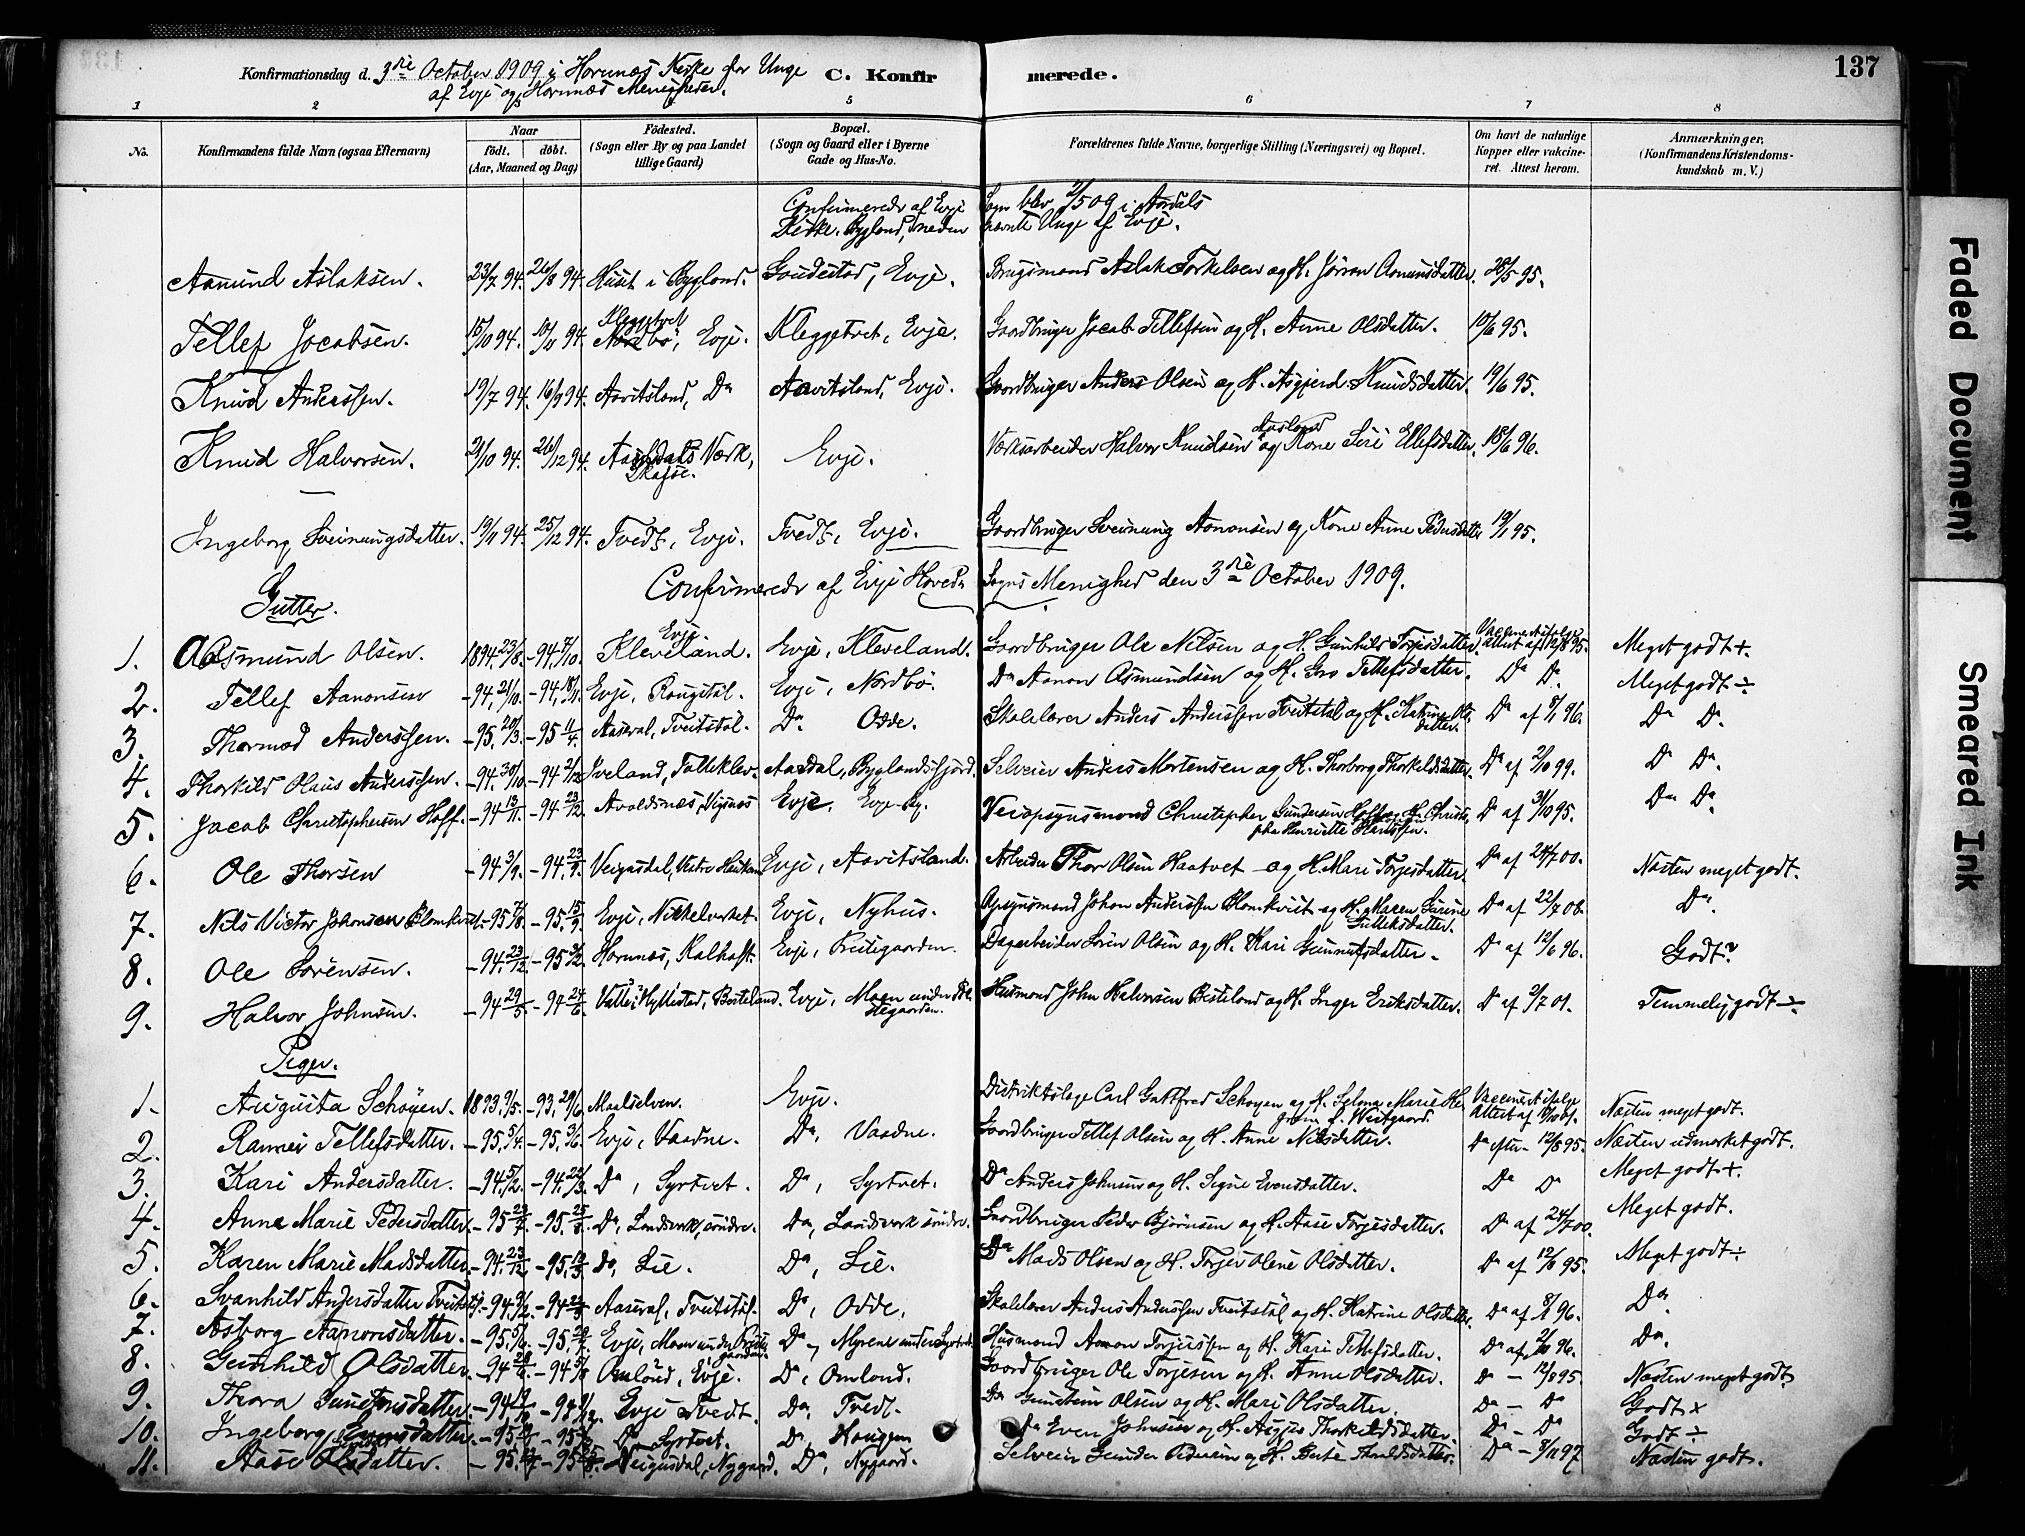 137
Konfirmationsdag d. 3die October 1909 i Hornnæs Kirke for Unge
af Evje og Hornnæs Menigheder.
C. Konfirmerede.
1 2 5 6 7 8
No. Konfirmandens fulde Navn (ogsaa Efternavn) Naar født. døbt. (Aar, Maaned og Dag) Fødested. (Sogn eller By og paa Landet tillige Gaard) Bopæl. (Sogn og Gaard eller i Byerne Gade og Hus-No. Forældrenes fulde Navne, borgerlige Stilling (Næringsvei) og Bopæl. Om havt de naturlige Kopper eller vakcineret. Attest herom. Anmærkninger, (Konfirmandens Kristendomskundskab m. V.)
Confirmerede af Evje Sogn blev 2/5 09 i Aardals
Kirke, Bygland, nævnte Unge af Evje.
Aamund Aslaksen. 23/7 94. 26/8 94. Huset i Bygland. Gaudestad, Evje. Brugsmand Aslak Torkelsen og H. Jøran Aamundsdatter. 28/5 95.
Tellef Jacobsen. 15/10 94. 10/11 94. Kleggetvet, Evje. Kleggetvet, Evje. Gaardbruger Jacob Tellefsen og H. Anne Olsdatter. 19/6 95.
Knud Anderssen. 19/7 94. 16/9 94. Aavitsland, Do Aavitsland, Evje. Gaardbruger Anders Olsen og H. Asgjerd Knudsdatter. 19/6 95.
Knud Halvorsen. 21/10 94. 26/12 94. Aamdals Værk, Skafse. Evje. Værksarbeider Halvor Knudsen Aasland og Kone Siri Ellefsdatter. 18/6 96.
Ingeborg Sveinungsdatter. 19/11 94. 25/12 94. Tvedt, Evje. Tvedt, Evje. Gaardbruger Sveinung Aanonsen og Kone Anne Pedersdatter 19/6 95.
Confirmerede af Evje Hoved-Sogns Menighed den 3die October 1909.
Gutter.
1. Aasmund Olsen. 1894. 23/8. -94. 7/10. Evje Kleveland. Evje, Kleveland. Gaardbruger Ole Nilsen og H. Gunhild Torjesdatter. Vaccinert ifølge Attest af 12/8 95. Meget godt +.
2. Tellef Aanonsen -94. 21/10. -94. 18/11. Evje, Rougstøl. Evje, Nordbø. Do Aanon Osmundsen og H. Gro Tellefsdatter. Do Do Meget godt ÷
3. Thormod Anderssen. -95. 20/3. -95 11/4. Aaseral, Tveitstøl. Do Odde. Skolelærer Anders Anderssen Tveitstøl og H. Katrine Olsdatter. Do af 8/1 96. Do Do.
4. Thorkild Olaus Anderssen. -94. 30/10 -94 2/12 Iveland, Falleklev. Aardal, Byglandsfjord. Selveier Anders Mortensen og H. Thorborg Thorkildsdatter. Do af 2/10 99. Do Do.
5. Jacob Christophersen Hoff. -94 13/11. -94 23/12 Avaldsnæs, Vignæs Evje, Evje-By. Veiopsynsmand Christopher Gundersen Hoff og H. Christophe Henriette Hansen. Do af 31/10 95. Do Do.
6. Ole Thorsen -94 3/9. -94. 23/9. Veigusdal, Evje, Aavitsland. Arbeider Thor Olsen Haatvet og H. Mari Torjesdatter. Do af 24/7 00. Næsten meget godt.
7. Nils Victor Johansen Blomkvist. -95 7/8. -95. 15/9. Evje, Nikkelverket. Evje, Nyhus. Opsynsmand Johan Anderssen Blomkvist og H. Maren Gurine Gulleksdatter. Do af 22/7 08. Do.
8. Ole Sørensen. -94. 23/12. -95 Hornnæs, Kalhoft. Evje, Prestegaarden. Dagarbeider Søren Olsen og H. Kari Gunnufsdatter. Do af 12/6 96. Godt?
9. Halvor Johnsen. -94 29/5 -94 24/6. Valle, Hyllestad, Besteland. Evje, Moen under Prestegaarden. Husmand John Halvorsen Besteland og H. Inger Eriksdatter. Do af 2/7 01. Temmelig godt ÷.
Piger.
1. Augusta Schøyen. 1893. 9/5. -93. 29/6. Maalselven. Evje. Distriktslæge Carl Gottfred Schøyen og H. Selma Marie f. Westgaard. Vaccinert ifølge Attest af Næsten meget godt.
2. Ramei Tellefsdatter. -95. 5/4. -95. 3/6. Evje, Vaadne. Do, Vaadne. Gaardbruger Tellef Olsen og H. Anne Nilsdatter. Do efter 12/8 95. Næsten udmerket godt.
3. Kari Andersdatter. -94. 5/2. -94. 22/3. Do, Syrtvet. Do, Syrtvet. Do Anders Johnsen og H. Signe Evensdatter. Do Do Meget godt +.
4. Anne Marie Pedersdatter. -95 22/7 -95. 25/8. Do, Landsverk, søndre. Do, Landsverk søndre. Gaardbruger Peder Bjørnsen og H. Aase Torjusdatter. Do af 24/7 00. Meget godt.
5. Karen Marie Madsdatter. -94. 23/12 -95. 12/3. Do, Lie. Do, Lie. Do Mads Olsen og H. Torjer Olene Olsdatter. Do af 12/8 95. Meget godt ÷
6. Svanhild Andersdatter Tveitstøl. -94 9/2. -94 22/3 Aaseral, Tveitstøl. Do, Odde. Skolelærer Anders Anderssen Tveitstøl og H. Katrine Olsdatter. Do af 8/1 96. Do.
7. Asborg Aanonsdatter. -95. 5/6. -95. Evje, Moen under Prestegaarden. Do, Myrene under Syrtvet. Husmand Aanon Torjussen og H. Kari Tellefsdatter. Do af 2/10 96. Do.
8. Gunhild Olsdatter. -94 -94 Omlond, Evje. Do, Omlond. Gaardbruger Ole Torjesen og H. Anne Olsdatter. Do - 12/8 95. Næsten meget godt.
9. Thora Gunstensdatter. -94 -94 Evje Tvedt. Do, Tvedt. Do Gunsten Olsen og H. Mari Olsdatter. Do - Do Godt +
10. Ingeborg Evensdatter. -95 -95. Do Syrtvet. Do, Haugen Do Even Johnsen og H. Asgjer Thorkildsdatter. Do - Do Godt ÷
11. Aase Gundersdatter. -95. -95 Veigusdal, Nygaard. Do, Nygaard. Selveier Gunder Pedersen og H. Berte Tharaldsdatter. Do - 3/11 97 Næsten godt.
Faded Document
Smeared Ink